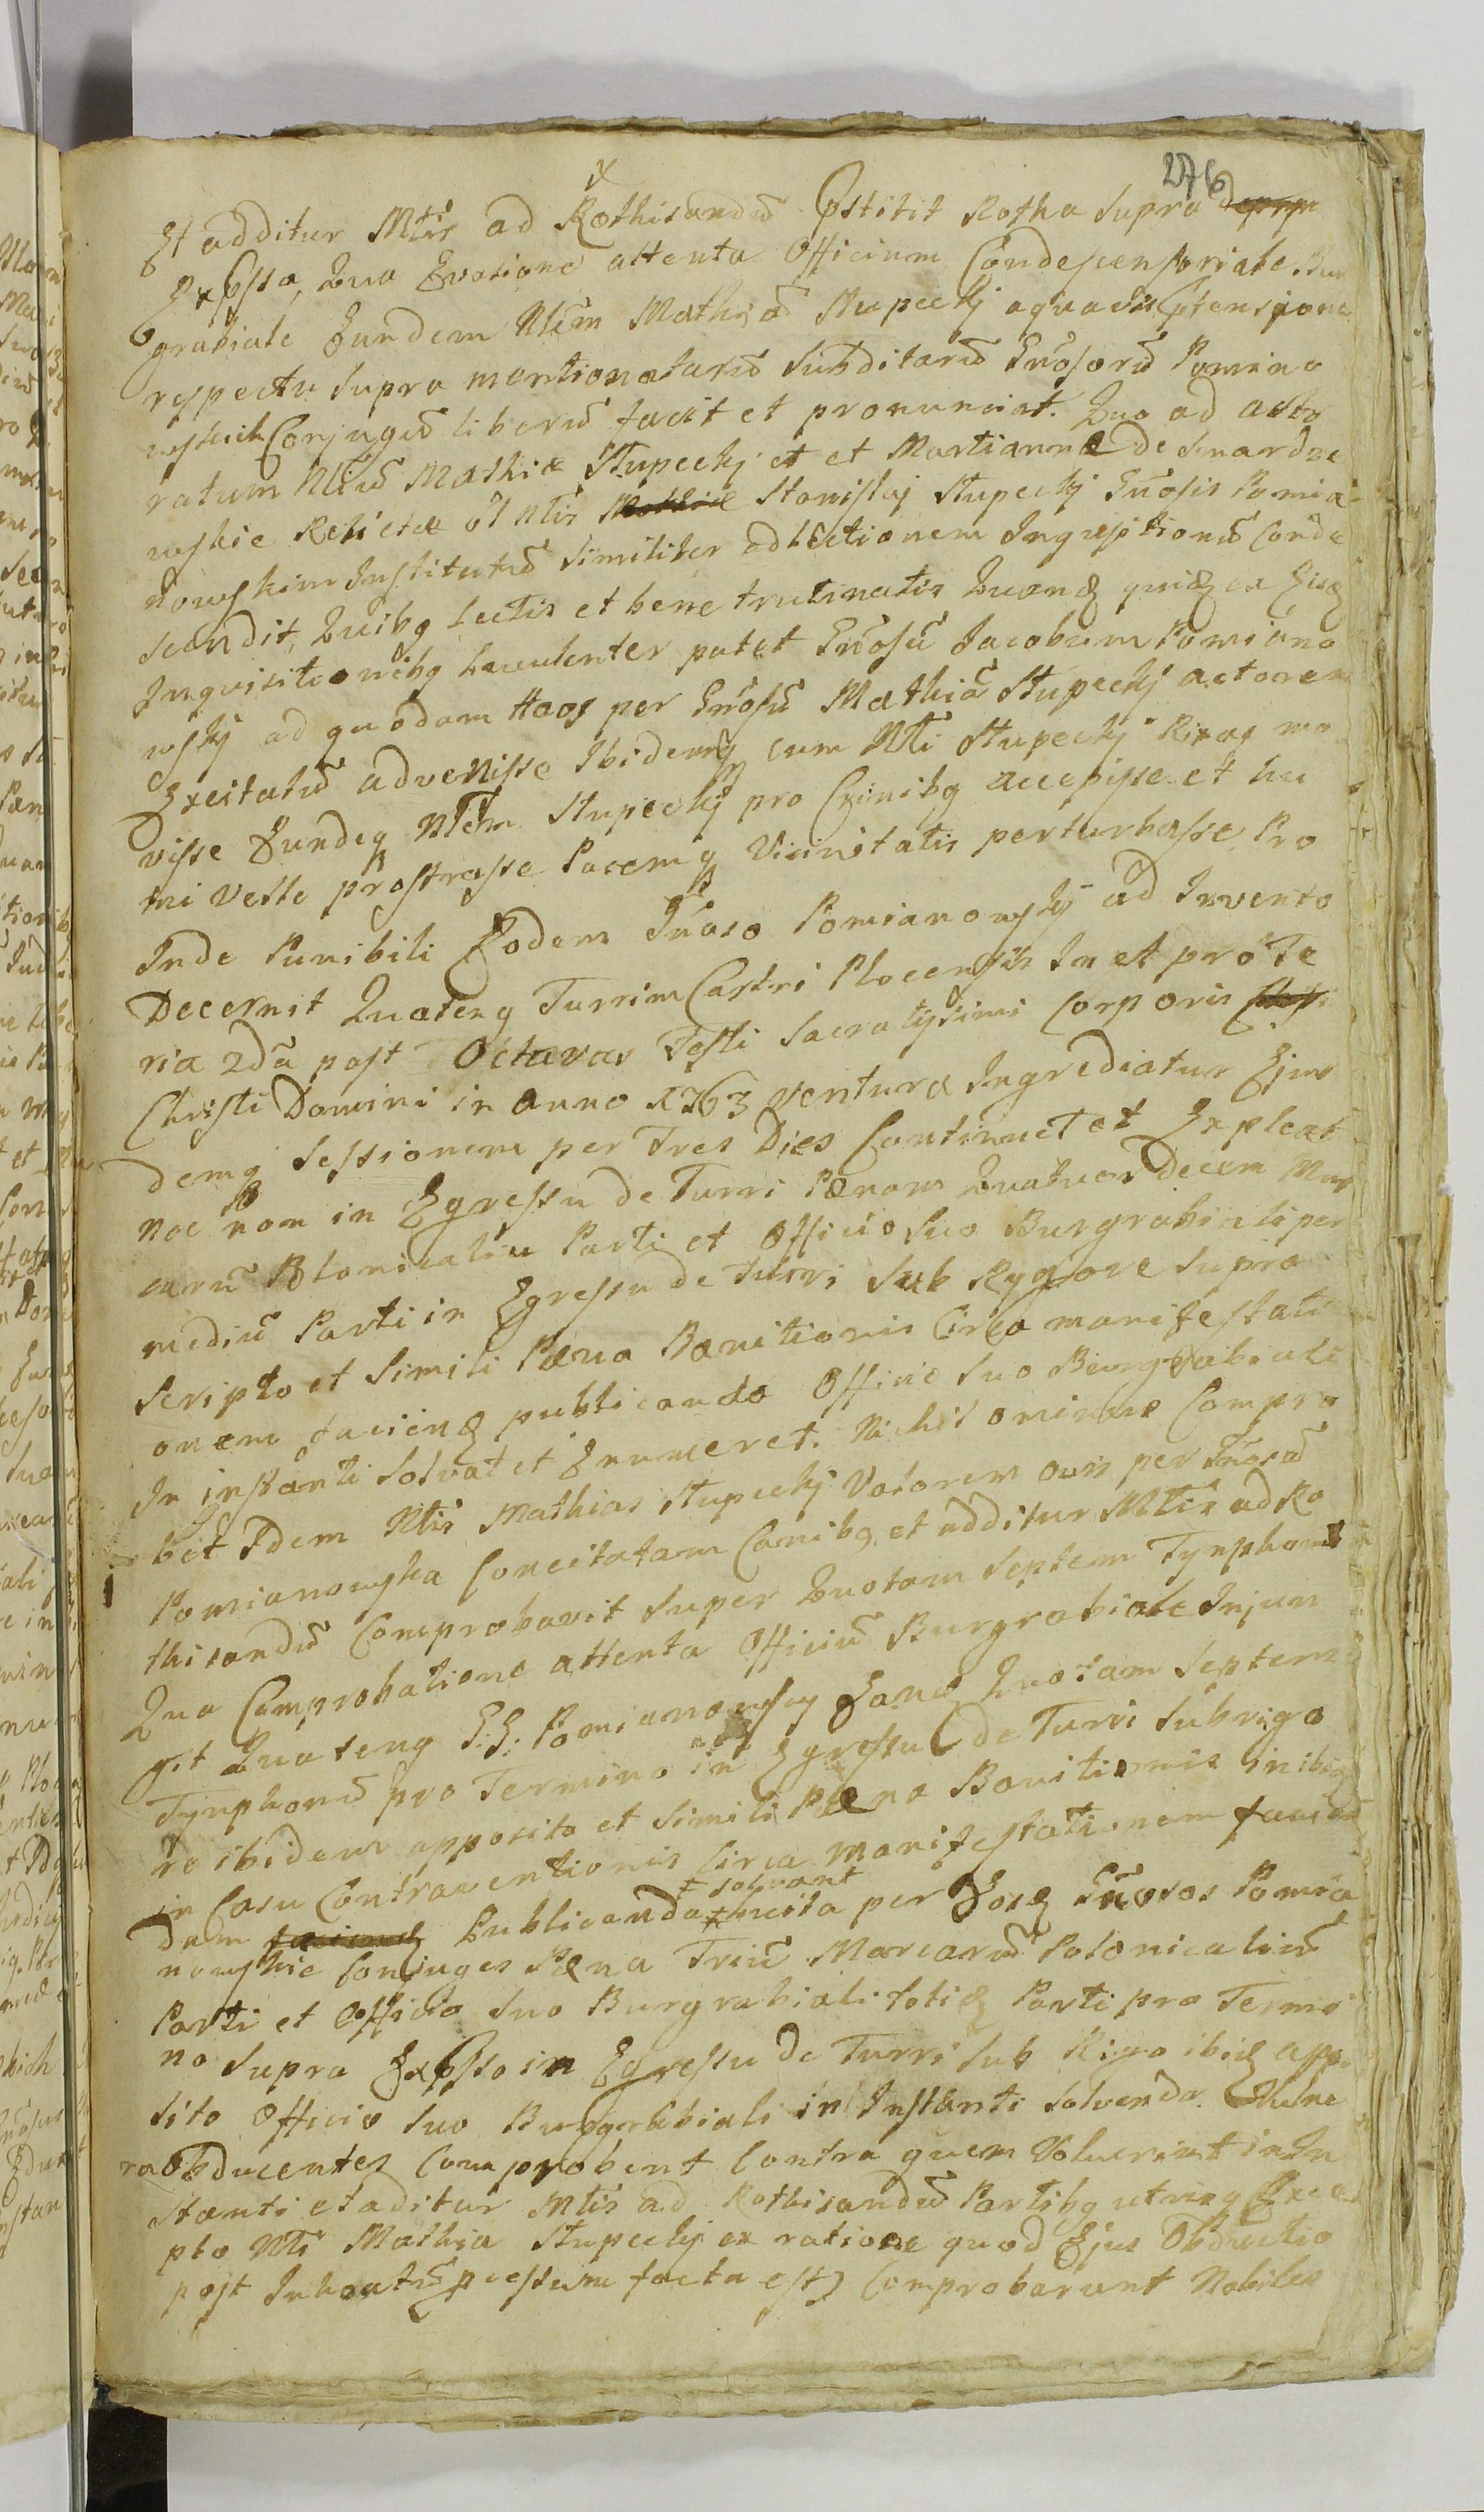 276
Et additur Mtis ad Rothisandũ Cpstitit Rotha supra
Expssa, Qua Evasione attenta Officium Condescensoriale Bur
grabiale Eundem Nlem Mathiã Stupecky aquavis Ptensione
respectu supra mentionatarũ Subditarũ Gnosorũ Pomiano
wskich Conjugũ liberũ facit et pronunciat. Quo ad acto
ratum Nliũ Mathiæ Stupecky et et Martiannæ de Smardze
wskie Relictæ ol Nlis Mathiæ Stanislaj Stupecky Gnosis Pomia
nowskim Institutũ Similiter ad Lectionem Inquisitionũ Conde
scendit, Quibg Lectis et bene trutinatis Quandq quidq ex Eisdq
Inquisitionibg Luculenter patet Gnosũ Jacobum Pomiano
wsky ad quodam Haos per Gnosũ Mathiã Stupecky actorem
Excitatũ advenisse Ibidemq cum Nli Stupecky Rixas mo
visse Eundeq Nlem Stupecky pro Crinibg accepisse et hu
mi Velle prostrasse Pacemq Vicinitatis perturbasse, Pro
Inde Punibili Eodem Gnoso Pomianowsky ad Invento
Decernit Quateng Turrim Castri Plocensis In et pro Fe
ria 2da post Octavas Festi Sacratissimi Corporis
Christi Domini in anno 1763 ventura Ingrediatur Ejus
demq Sessionem per Tres Dies Continuet et Expleat
nec non in Egressu de Turri Pænam Quatuor Decem Mar
carũ Polonicaliu Parti et Officio Suo Burgrabiali per
mediũ Parti in Egressu de Turri Sub Rygore Supra
scripto et Simili Pæna Banitionis Circa manifestati
onem faciendq publicanda Officie Suo Burgrabiali
In instanti Solvat et Enumeret. Nihil ominus Compro
bet Idem Nlis Mathias Stupecky Valorem ovis per Gnosã
Pomianowska Concitatam Canibg, et additur Mtis ad Ro
thisandũ Comprobavit Super Quotam Septem Tynphonũ
Qua Comprobatione attenta Officiũ Burgrabiale Injun
git Quateng G.G. Pomianowscy Eandq Quotam Septem
Tynphonũ pro Termino in Egressu de Turri Sub rigo
re ibidem apposito et Simili Pæna Banitionis inibi
in Casu Contraventionis Circa manifestationem facien
dam faciendq Publicanda ‡ Solvant ‡ Luita per Eosdq Gnosos Pomia
nowskie Conjuges Pæna Triũ Marcarũ Polonicaliũ
Parti et Officio Suo Burgrabiali totidq Parti pro Termi
no Supra Expsso in Egressu de Turri Sub Rigo ibidq appo
sito Officio Suo Burgrabiali in Instanti Solvenda. Vulne
ra Obducentes Comprobent Contra quem Voluerint in In
stanti et aditur Mtis ad Rothisandũ Partibg utrisq Exce
pto Nli Mathia Stupecky ex ratione quod Ejus Obductio
post Inhoatũ Pcessum facta est) Comprobarunt Nobiles